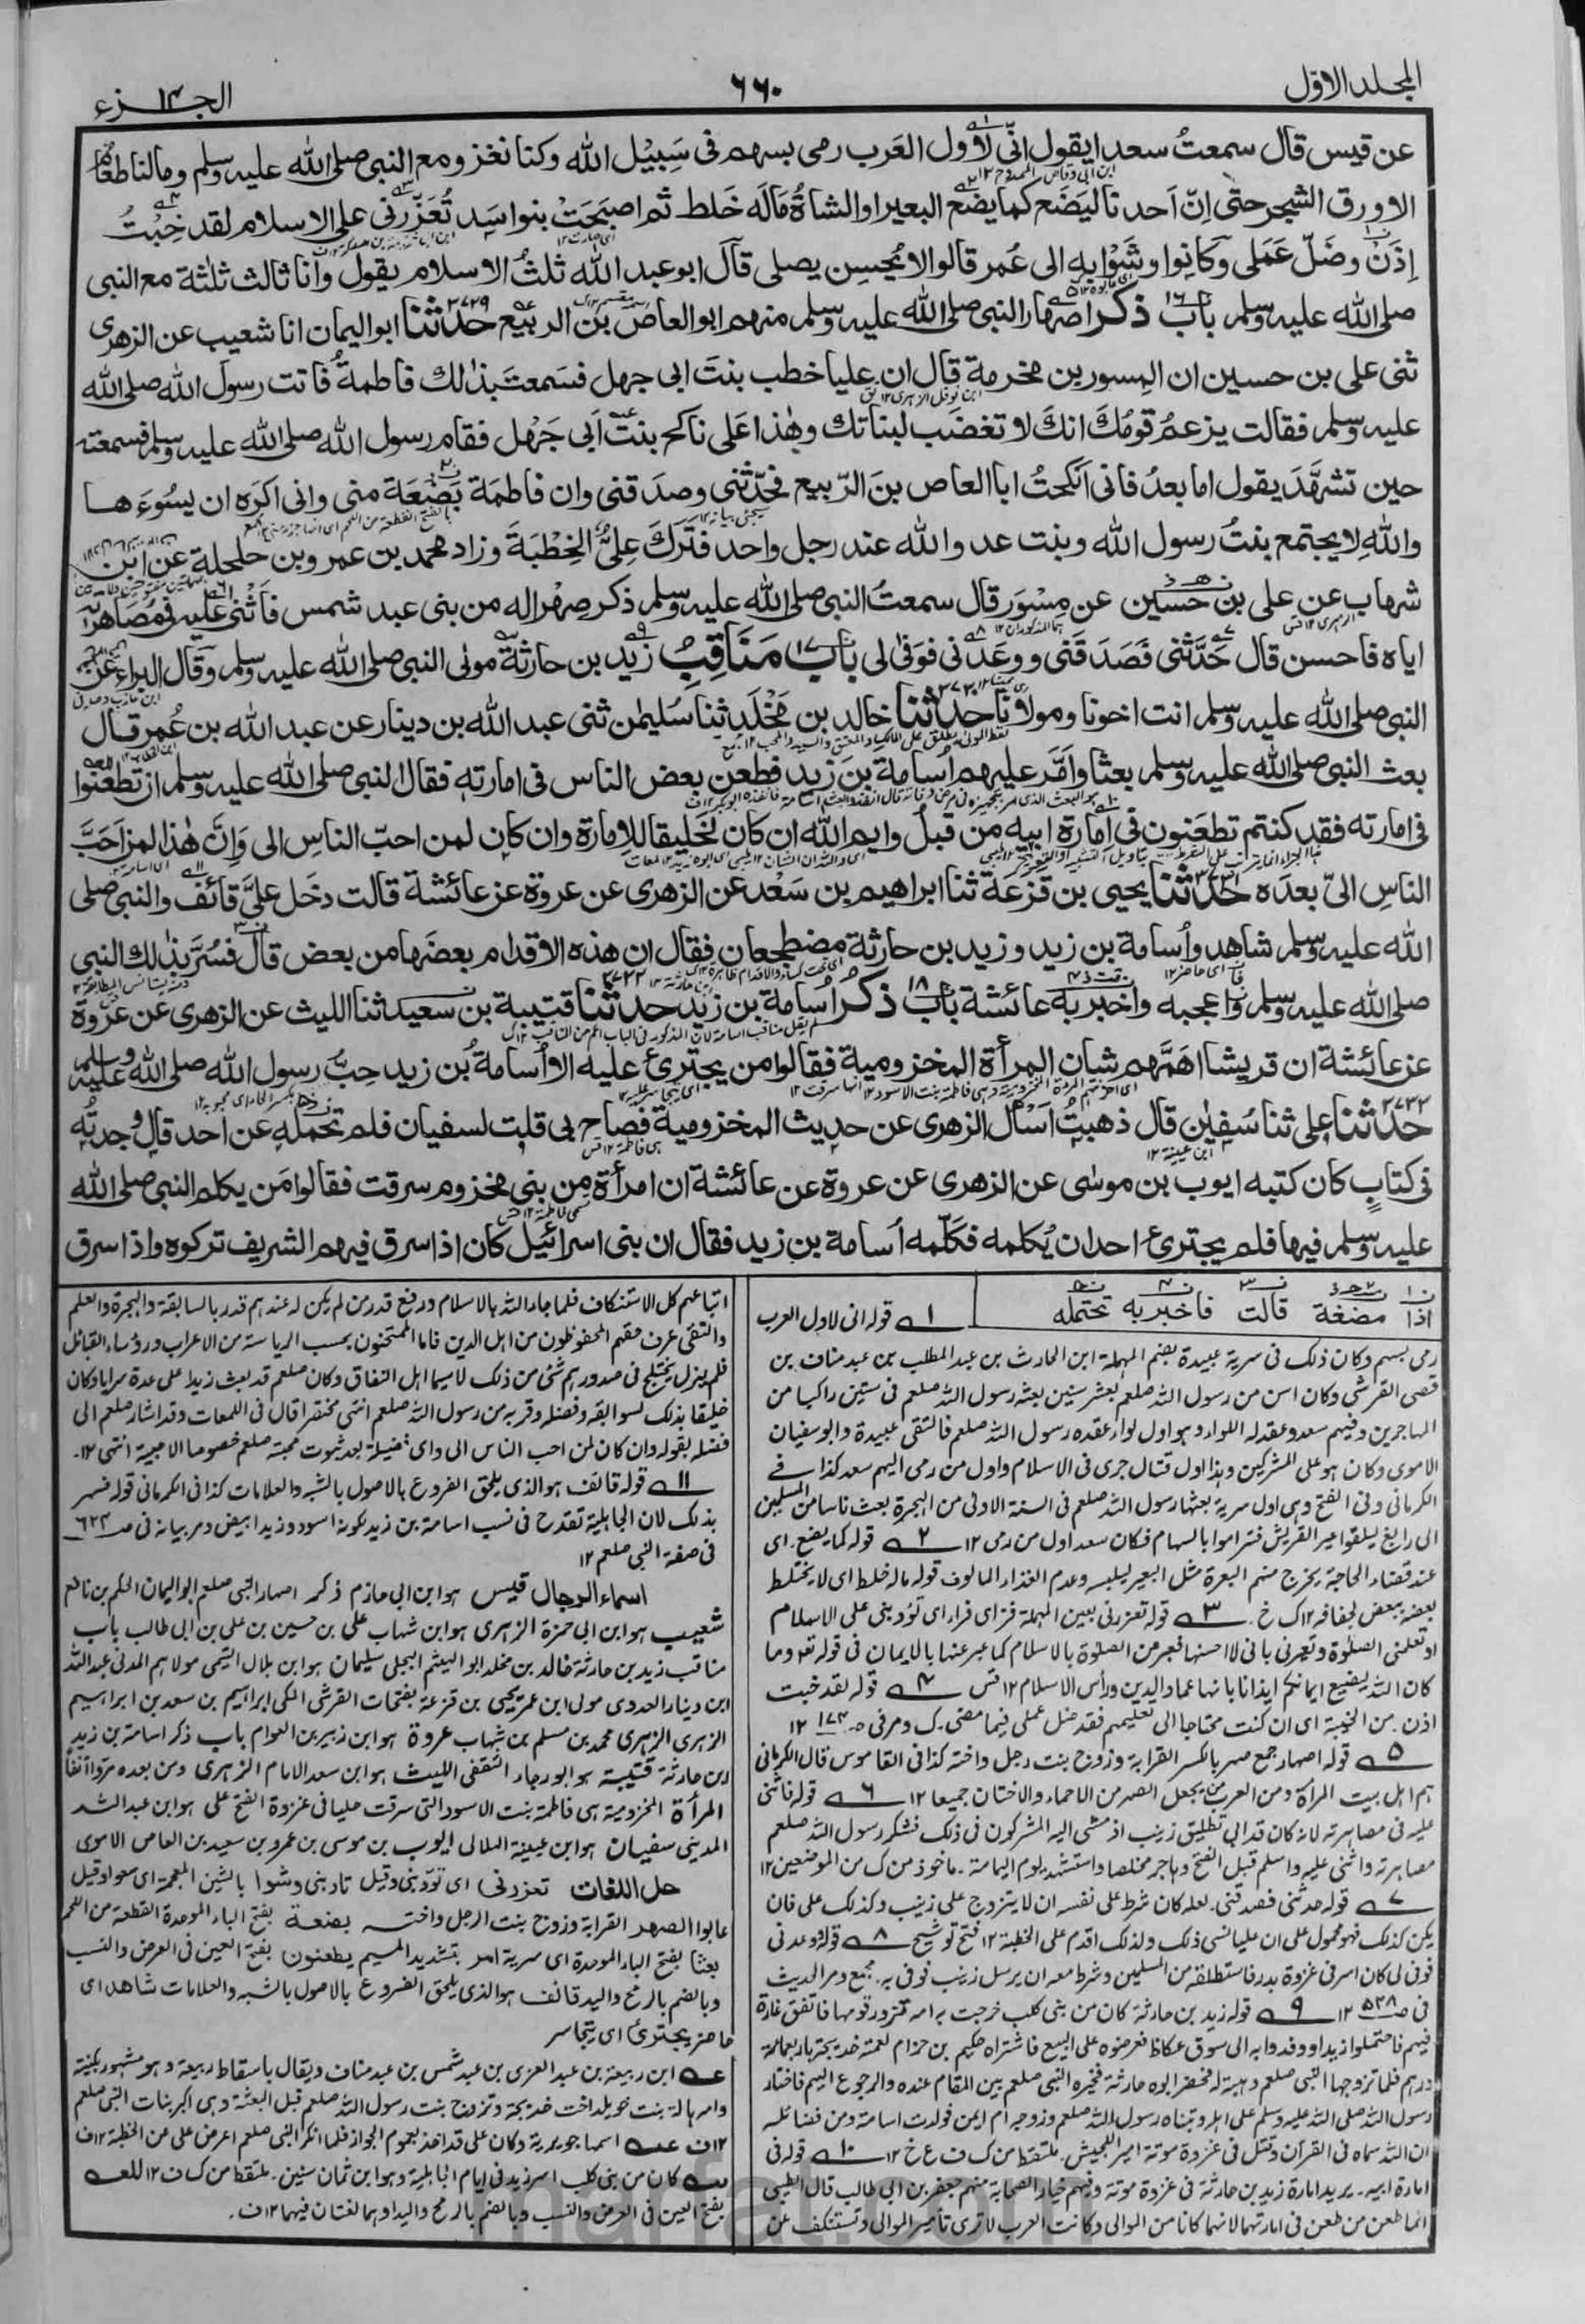 المجلد الاول
٦٦٠
الجزء ١٤
عن قيس قال سمعتُ سعدا يقول اِنّى لاَول العَرب رمى بسهم فى سَبِيْل الله وكنا نغزو مع النبى صلى الله عليه وسلم وما لنا طعام
الا ورق الشجر حتى اِنّ اَحدنا ليَضَع كما يضَع البعير او الشاةُ مَالَه خَلط ثم اصبَحَتْ بنو اسَد تُعَزّرنى على الاسلام لقد خِبْتُ
اِذَنْ وضَلّ عَمَلى وكانوا وشَوْا به الى عُمر قالوا لا يُحسِن يصلى قال ابو عبد الله ثلثُ الاسلام يقول وانا ثالث ثلثة مع النبى
صلى الله عليه وسلم باب ١٦ ذكر اصهار النبى صلى الله عليه وسلم منهم ابو العاص بن الربيع ٣٧٢٩ حدثنا ابو اليمان انا شعيب عن الزهرى
ثنى على بن حسين ان المِسور بن مخرمة قال ان عليا خطب بنت ابى جهل فسَمعتَ بذلك فاطمةُ فاتت رسولَ الله صلى الله
عليه وسلم فقالت يزعمُ قومُك انك لا تغضَب لبناتك وهذا عَلى ناكح بنت اَبى جَهْل فقام رسول الله صلى الله عليه وسلم فسمعته
حين تشهَّدَ يقول اما بعدُ فانى اَنكحتُ ابا العاص بنَ الرّبيع فحدّثنى وصدَقنى وان فاطمة بَضْعَة منى وانى اكرَه ان يسُوءَها
واللهِ لا يجتمع بنتُ رسول الله وبنت عدو الله عند رجل واحد فتَركَ علِىٌّ الخِطْبَةَ وزاد محمد بن عمرو بن حلحلة عن ابن
شهاب عن على بن حسين عن مِسْوَر قال سمعتُ النبى صلى الله عليه وسلم ذكر صِهْرا له من بنى عبد شمس فاَثنى عليه فى مُصَاهرته
اياه فاحسن قال حَدَّثنى فصَدَقنى ووعَدنى فوَفى لى باب ١٧ مَنَاقِبُ زيد بن حارثة مولى النبى صلى الله عليه وسلم وقال البراء عن
النبى صلى الله عليه وسلم انت اخونا ومولانا ٣٧٣٠ حدثنا خالد بن مَخْلَد ثنا سُليمٰن ثنى عبد الله بن دينار عن عبد الله بن عُمر قال
بعث النبى صلى الله عليه وسلم بعثا واَمَّر عليهم اُسامة بنَ زيد فطعن بعض الناس فى امارته فقال النبى صلى الله عليه وسلم ان تَطعَنُوا
فى امارته فقد كنتم تطعَنون فى امارة ابيه من قبلُ وايم الله ان كان لخَليقا للامارة وان كان لمن احبّ الناس الى وَاِنَّ هٰذا لمن اَحَبّ
الناسِ الىّ بعدَه ٣٧٣١ حدثنا يحيى بن قزعَة ثنا ابراهيم بن سَعْد عن الزهرى عن عروة عن عائشة قالت دخَل علىَّ قائف والنبى صلى
الله عليه وسلم شاهد واُسامة بن زيد وزيد بن حارثة مضطجعان فقال ان هذه الاقدام بعضَها من بعض قال فسُرَّ بذلك النبى
صلى الله عليه وسلم واعجبه واخبر به عائشة باب ١٨ ذكر اُسامة بن زيد ٣٧٣٢ حدثنا قتيبة بن سعيد ثنا الليث عن الزهرى عن عروة
عن عائشة ان قريشا اهَمَّهم شان المرأة المخزومية فقالوا من يجترئ عليه الا اُسامةُ بن زيد حِبُّ رسول الله صلى الله عليه وسلم
٣٧٣٣ حدثنا على ثنا سُفيٰن قال ذهبتُ اَسْأل الزهرى عن حديث المخزومية فصاح بى قلت لسفيان فلم تحمله عن احد قال وجدته
فى كتابٍ كان كتبه ايوب بن موسى عن الزهرى عن عروة عن عائشة ان امرأة من بنى مخزوم سرقت فقالوا مَن يكلم النبى صلى الله
عليه وسلم فيها فلم يجترئ احد ان يُكلمه فكَلّمه اُسامة بن زيد فقال ان بنى اسرائيل كان اذا سرق فيهم الشريف تركوه واذا سرق
اذا مضغة قالت فاخبر به تحتمله
١ قوله انى لاول العرب
رمى بسهم وكان ذلك فى سرية عبيدة بضم المهملة ابن الحارث بن عبد المطلب بن عبد مناف بن
قصى القرشى وكان اسن من رسول الله صلعم بعشر سنين بعثه رسول الله صلعم فى ستين راكبا من
المهاجرين وفيهم سعد وعقد له اللواء وهو اول لواء عقده رسول الله صلعم فالتقى عبيدة وابو سفيان
الاموى وكان هو على المشركين وهذا اول قتال جرى فى الاسلام واول من رمى اليهم سعد كذا فى
الكرمانى وفى الفتح وهى اول سرية بعثها رسول الله صلعم فى السنة الاولى من الهجرة بعث ناسا من المسلمين
الى رابغ ليلقوا عير القريش فتراموا بالسهام فكان سعد اول من رمى ١٢ ٢ قوله كما يضع. اى
عند قضاء الحاجة يخرج منهم البعرة مثل البعير ليبسه وعدم الغذاء المالوف قوله ماله خلط اى لا يختلط
بعضه ببعض لجفافه ١٢ ك خ. ٣ قوله تعزرنى بعين المهملة فزاى فراء اى تؤدبنى على الاسلام
او تعلمنى الصلوة وتعيرنى بانى لا احسنها فعبر عن الصلوة بالاسلام كما عبر عنها بالايمان فى قوله تعـ وما
كان الله ليضيع ايمانكم ايذانا بانها عماد الدين ورأس الاسلام ١٢ قس ٤ قوله لقد خبت
اذن. من الخيبة اى ان كنت محتاجا الى تعليمهم فقد ضل عملى فيما مضى. ك ومر فى صـ ١٧٤ ١٢
٥ قوله اصهار جمع صهر بالكسر القرابة وزوج بنت رجل واخته كذا فى القاموس قال الكرمانى
هم اهل بيت المرأة ومن العرب من يجعل الصهر من الاحماء والاختان جميعا ١٢ ٦ قوله فاثنى
عليه فى مصاهرته لانه كان قد ابى تطليق زينب اذ مشى اليه المشركون فى ذلك فشكر رسول الله صلعم
مصاهرته واثنى عليه واسلم قبل الفتح وهاجر مخلصا واستشهد يوم اليمامة. ماخوذ من ك من الموضعين ١٢
٧ قوله حدثنى فصدقنى. لعله كان شرط على نفسه ان لا يتزوج على زينب وكذلك على فان
يكن كذلك فهو محمول على ان عليا نسى ذلك ولذلك اقدم على الخطبة ١٢ فتح توشيح ٨ قوله ووعدنى
فوفى لى كان اسر فى غزوة بدر فاستطلقه من المسلمين وشرط معه ان يرسل زينب فوفى به. مجمع ومر الحديث
فى صـ ٥٢٨ ١٢ ٩ قوله زيد بن حارثة كان من بنى كلب خرجت به امه تزور قومها فاتفق غارة
فيهم فاحتملوا زيدا ووفدوا به الى سوق عكاظ فعرضوه على البيع فاشتراه حكيم بن حزام لعمته خديجة باربعمائة
درهم فلما تزوجها النبى صلعم وهبته له فحضر ابوه حارثة فخيره النبى صلعم بين المقام عنده والرجوع اليهم فاختار
رسول الله صلى الله عليه وسلم على اهله وتبناه رسول الله صلعم وزوجه ام ايمن فولدت اسامة ومن فضائله
ان الله سماه فى القرآن وقتل فى غزوة موتة امير الجيش. ملتقط من ك ف ع خ ١٢ ١٠ قوله فى
امارة ابيه. يريد امارة زيد بن حارثة فى غزوة موتة وفيهم خيار الصحابة منهم جعفر بن ابى طالب قال الطيبى
انما طعن من طعن فى امارتهما لانهما كانا من الموالى وكانت العرب لا ترى تأمير الموالى وتستنكف عن
اتباعهم كل الاستنكاف فلما جاء الله بالاسلام ورفع قدر من لم يكن له عندهم قدر بالسابقة والهجرة والعلم
والتقى عرف حقهم المحفوظون من اهل الدين فاما الممتحنون بحسب الرياسة من الاعراب ورؤساء القبائل
فلم يزل يختلج فى صدورهم شئ من ذلك لا سيما اهل النفاق وكان صلعم قد بعث زيدا على عدة سرايا وكان
خليقا بذلك لسوابقه وفضله وقربه من رسول الله صلعم انتهى مختصرا قال فى اللمعات وقد اشار صلعم الى
فضله بقوله وان كان لمن احب الناس الى واى فضيلة بعد ثبوت محبته صلعم خصوصا الاحبية انتهى ١٢.
١١ قوله قائف هو الذى يلحق الفروع بالاصول بالشبه والعلامات كذا فى الكرمانى قوله فسر
بذلك لان الجاهلية تقدح فى نسب اسامة بن زيد لكونه اسود وزيد ابيض ومر بيانه فى صـ ٦٢٤
فى صفة النبى صلعم ١٢
اسماء الرجال قيس هو ابن ابى حازم ذكر اصهار النبى صلعم ابو اليمان الحكم بن نافع
شعيب هو ابن ابى حمزة الزهرى هو ابن شهاب على بن حسين بن على بن ابى طالب باب
مناقب زيد بن حارثة خالد بن مخلد ابو الهيثم البجلى سليمان هو ابن بلال التيمى مولاهم المدنى عبد الله
ابن دينار العدوى مولى ابن عمر يحيى بن قزعة بفتحات القرشى المكى ابراهيم بن سعد بن ابراهيم
الزهرى الزهرى محمد بن مسلم بن شهاب عروة هو ابن زبير بن العوام باب ذكر اسامة بن زيد
ابن حارثة قتيبة هو ابو رجاء الثقفى الليث هو ابن سعد الامام الزهرى ومن بعده مروا آنفا
المرأة المخزومية هى فاطمة بنت الاسود التى سرقت حليا فى غزوة الفتح على هو ابن عبد الله
المدينى سفيان هو ابن عيينة الهلالى ايوب بن موسى بن عمرو بن سعيد بن العاص الاموى
حل اللغات تعزرنى اى تؤدبنى وقيل تادبنى وشوا بالشين المعجمة اى سعوا وقيل
عابوا الصهر القرابة وزوج بنت الرجل واخته بضعة بفتح الباء الموحدة القطعة من اللحم
بعثا بفتح الباء الموحدة اى سرية امر بتشديد الميم يطعنون بفتح العين فى العرض والنسب
وبالضم بالرمح واليد قائف هو الذى يلحق الفروع بالاصول بالشبه والعلامات شاهد اى
حاضر يجترئ اى يتجاسر
عـه ابن ربيعة بن عبد العزى بن عبد شمس بن عبد مناف ويقال باسقاط ربيعة وهو مشهور بكنية
وامه هالة بنت خويلد اخت خديجة وتزوج بنت رسول الله صلعم قبل البعثة وهى اكبر بنات النبى صلعم
١٢ف عـه اسمها جويرية وكان على قد اخذ بعموم الجواز فلما انكر النبى صلعم اعرض على عن الخطبة ١٢ف
كان من بنى كلب اسر زيد فى ايام الجاهلية وهو ابن ثمان سنين. ملتقط من ك ف ١٢ للعـه
بفتح العين فى العرض والنسب وبالضم بالرمح واليد او هما لغتان فيهما ١٢ف.
marfat.com